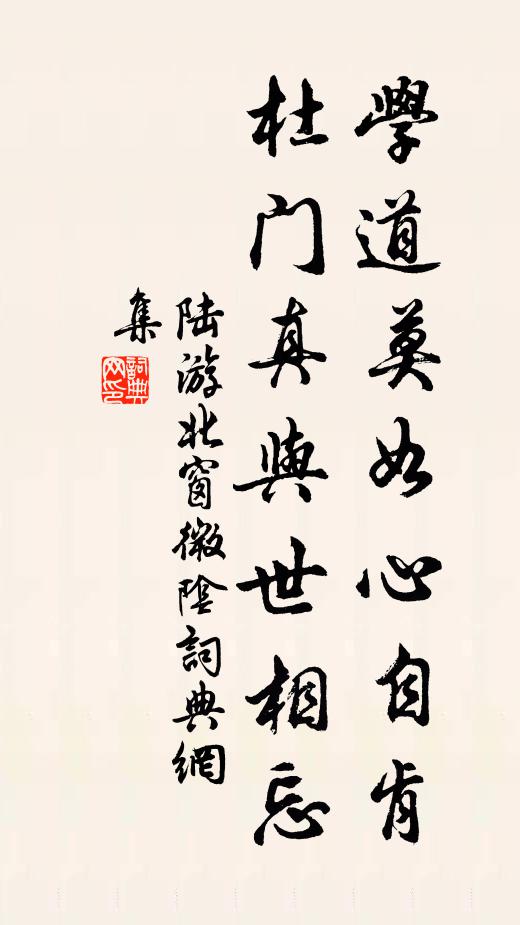 學道莫如心自肯
杜门真與世相忘
陆游北窗微陰詞典網
集
詞典网印